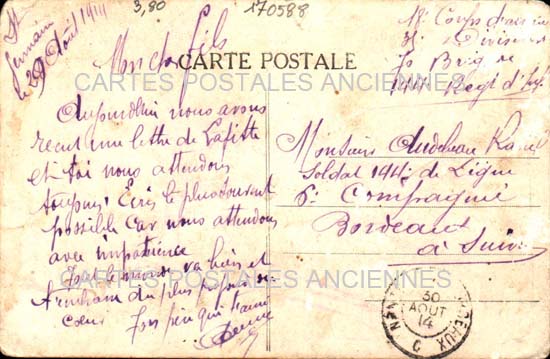 St
Germain
le 29 Août 1914
3,80
170588
Mon cher fils
CARTE POSTALE
18e Corps d'armée
35e Division
70 Brig
144e Régi d'Inf
CARTES POSTALES ANCIENNES
Aujourd'hui nous avons
recut une lettre de Lafitte
et toi nous attendons
toujours Ecris le plus souvent
possible car nous attendons
avec impatience
Tout le monde va bien et
t'embrasse du plus profond du
cœur Ton père qui t'aime
Monsieur Audebeau
Soldat 144e de Ligne
6e Compagnie
Bordeaux
à Suivre
CARTES POSTALES ANCIENNES
BORDEAUX
30
AOUT
14